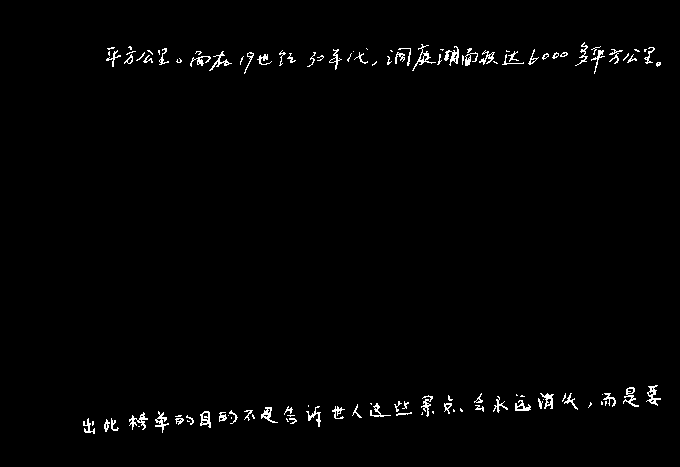 平方公里。而在19世纪30年代，洞庭湖面积达6000多平方公里。
出此榜单的目的不是告诉世人这些景点会永远消失，而是要